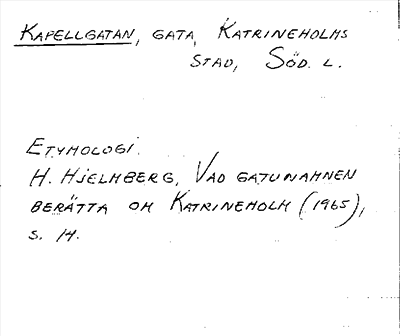 KAPELLGATAN, GATA, KATRINEHOLMS
STAD, SÖD. L.
ETYMOLOGI.
H. HJELMBERG, VAD GATUNAMNEN
BERÄTTA OM KATRINEHOLM (1965),
S. 14.